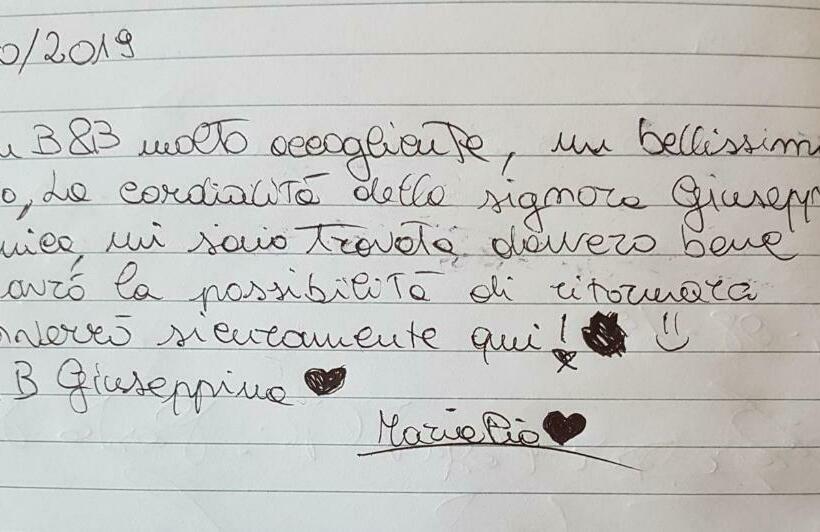 0/2019
B&B molto accogliente, un bellissim
o, La cordialità della signora Giusepp
unica, mi sono Trovata davvero bene
avrò la possibilità di ritornare
verrò sicuramente qui!
B Giuseppina
Maria Pia